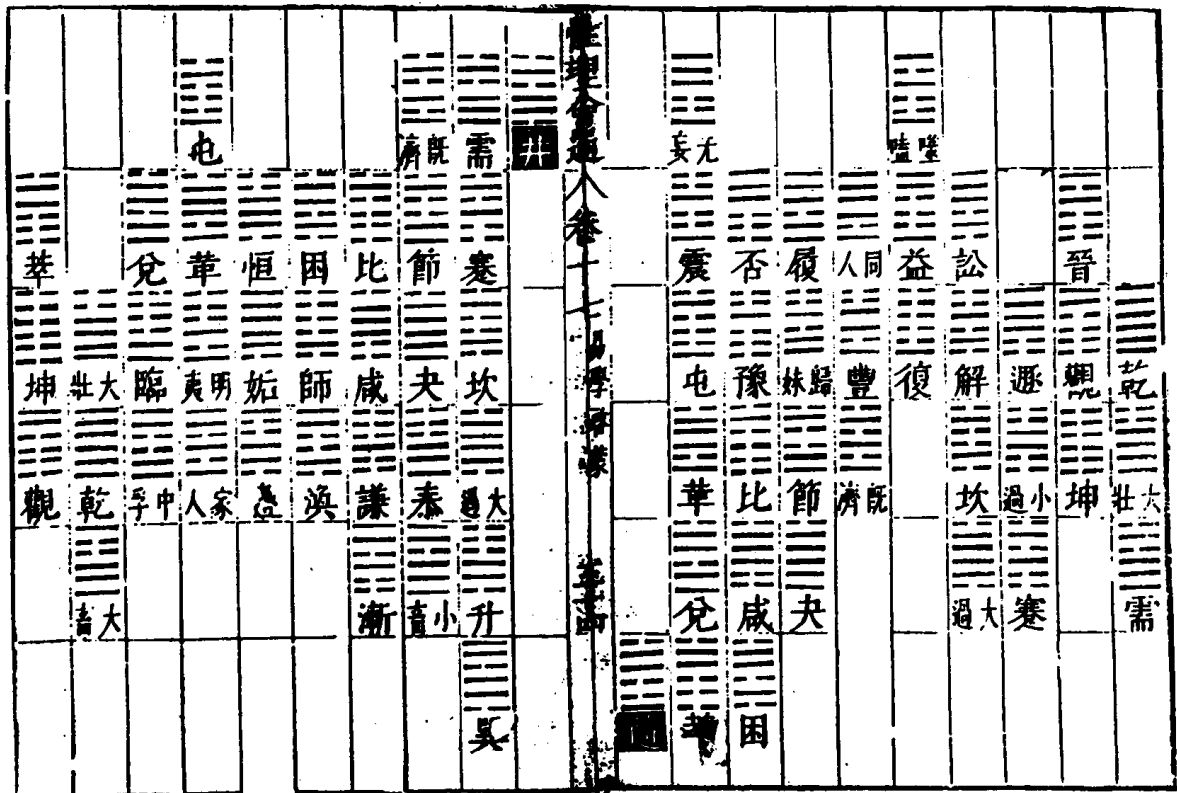 乾 大壯 需
晉 觀 坤
遯 小過 蹇
訟 解 坎 大過
噬嗑 益 復
同人 豐 既濟
履 歸妹 節 夬
否 豫 比 咸 困
无妄 震 屯 革 兌
性理會通八卷十七 易學啓蒙
井
需 蹇 坎 大過 升 巽
既濟 節 夬 泰 小畜
比 咸 謙 漸
困 師 渙
恒 姤 蠱
屯 革 明夷 家人
兌 臨 中孚
大壯 乾 大畜
萃 坤 觀